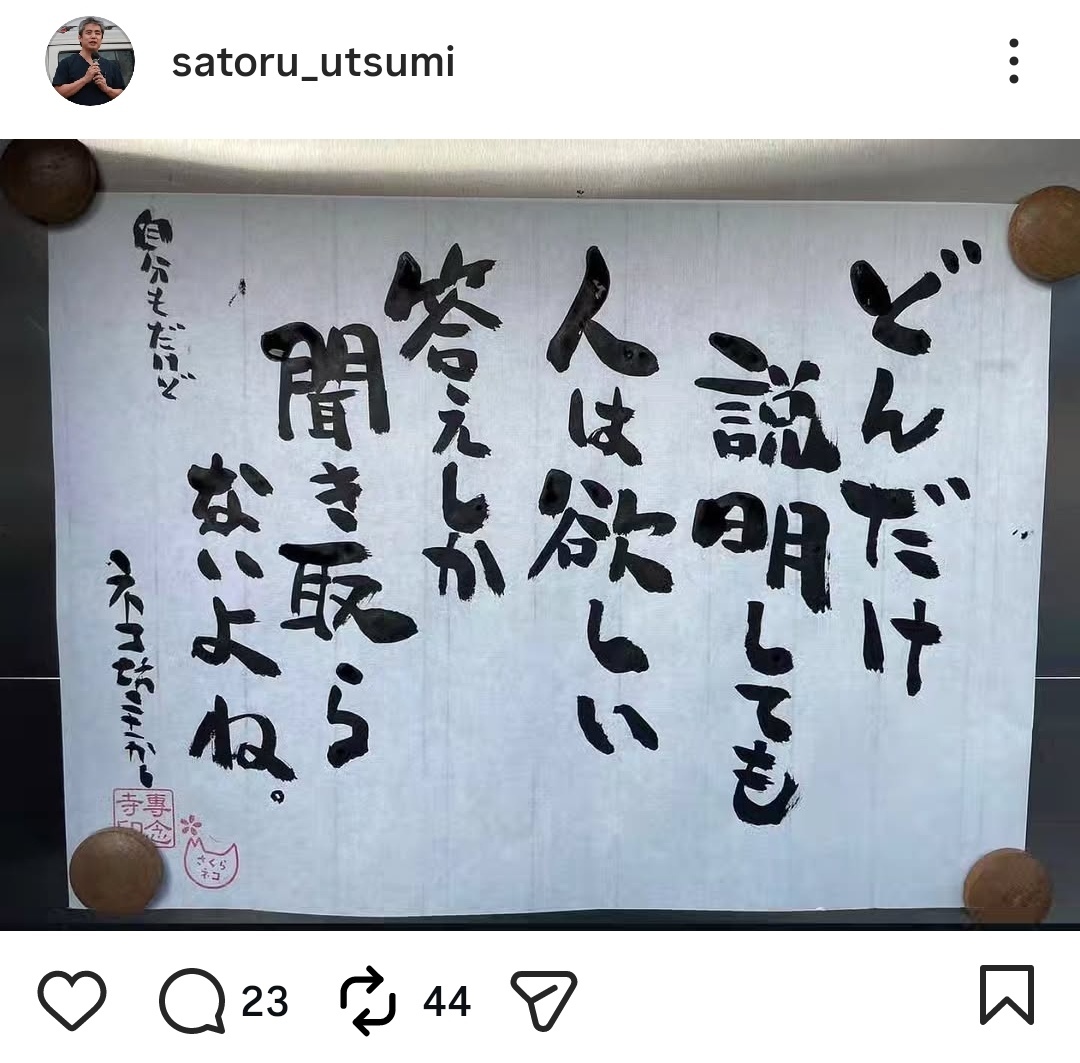 satoru_utsumi
どんだけ
説明しても
人は欲しい
答えしか
聞き取ら
ないよね。
自分もだけど
専念
寺印
さくら
ネコ
23
44